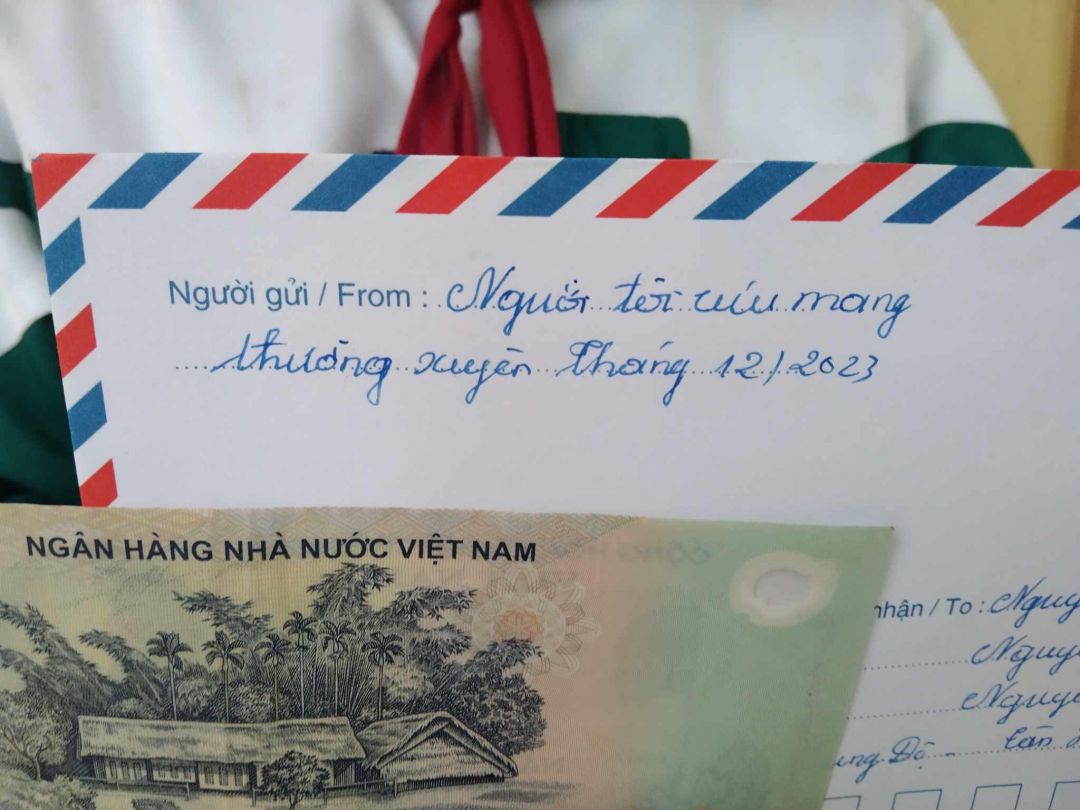 Người gửi / From : Người tôi cưu mang
thường xuyên Tháng 12/2023
NGÂN HÀNG NHÀ NƯỚC VIỆT NAM
nhận / To : Nguy
Nguy
Nguy
ung Độ - Tân